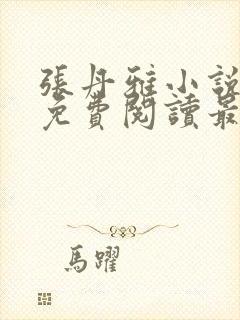 張丹雅小說
免費閱讀最
馬躍